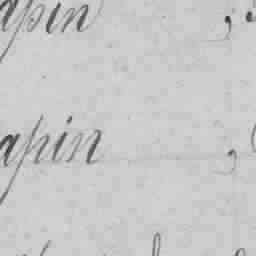 apin ;
apin ,